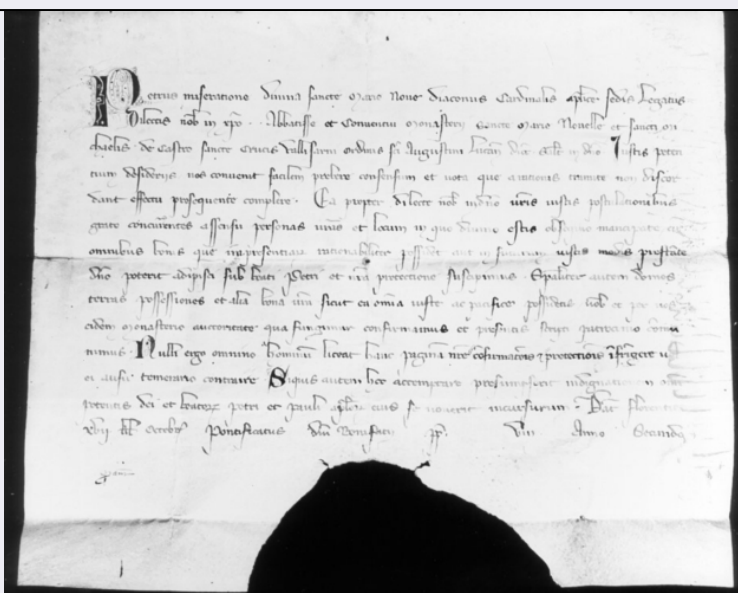 Petrus miseratione divina sancte Marie Nove diaconus Cardinalis aplice sedis Legatus
Dilectis nob in xpo .. Abbatisse et Conventui monasterii Sancte Marie Novelle et sancti Mi
chaelis de Castro sancte Crucis Vallisarni ordinis sci Augustini Lucan dioc salt in dno Iustis peten
tium desideriis nos convenit facilem prebere consensum et vota que a rationis tramite non discor
dant effectu prosequente complere. Ea propter dilecte nob in dno vris iustis postulationibus
grato concurrentes assensu personas vras et locum in quo divino estis obsequio mancipate cum
omnibus bonis que inpresentiarum rationabiliter possidet aut in futurum iustis modis prestante
dno poterit adipisci sub beati Petri et nra protectione suscipimus Spaliter autem domos
terras possessiones et alia bona vra sicut ea omnia iuste ac pacifice possidetis vob et per vos
eidem monasterio auctoritate qua fungimur confirmamus et presentis scripti patrocinio comu
nimus. Nulli ergo omnino hominum liceat hanc paginam nre confirmationis et protectionis infringere vel
ei ausu temerario contraire Siquis autem hoc attemptare presumpserit indignationem omni
potentis dei et beatorum petri et pauli aplorum eius se noverit incursurum. Dat Florentie
kl Octobr Pontificatus dni Bonifatii pp. VIII Anno Secundo